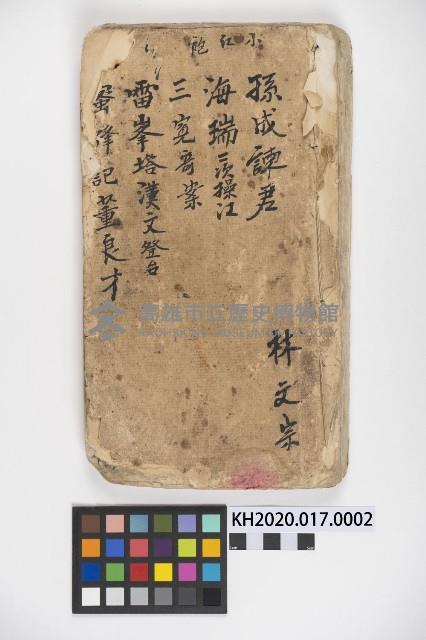 小紅袍
孫成諫君
海瑞三員操江
三寃奇案
雷峯塔漢文登台
董良才
林文宗
高雄市立歷史博物館
KAOHSIUNG MUSEUM OF HISTORY
KH2020.017.0002